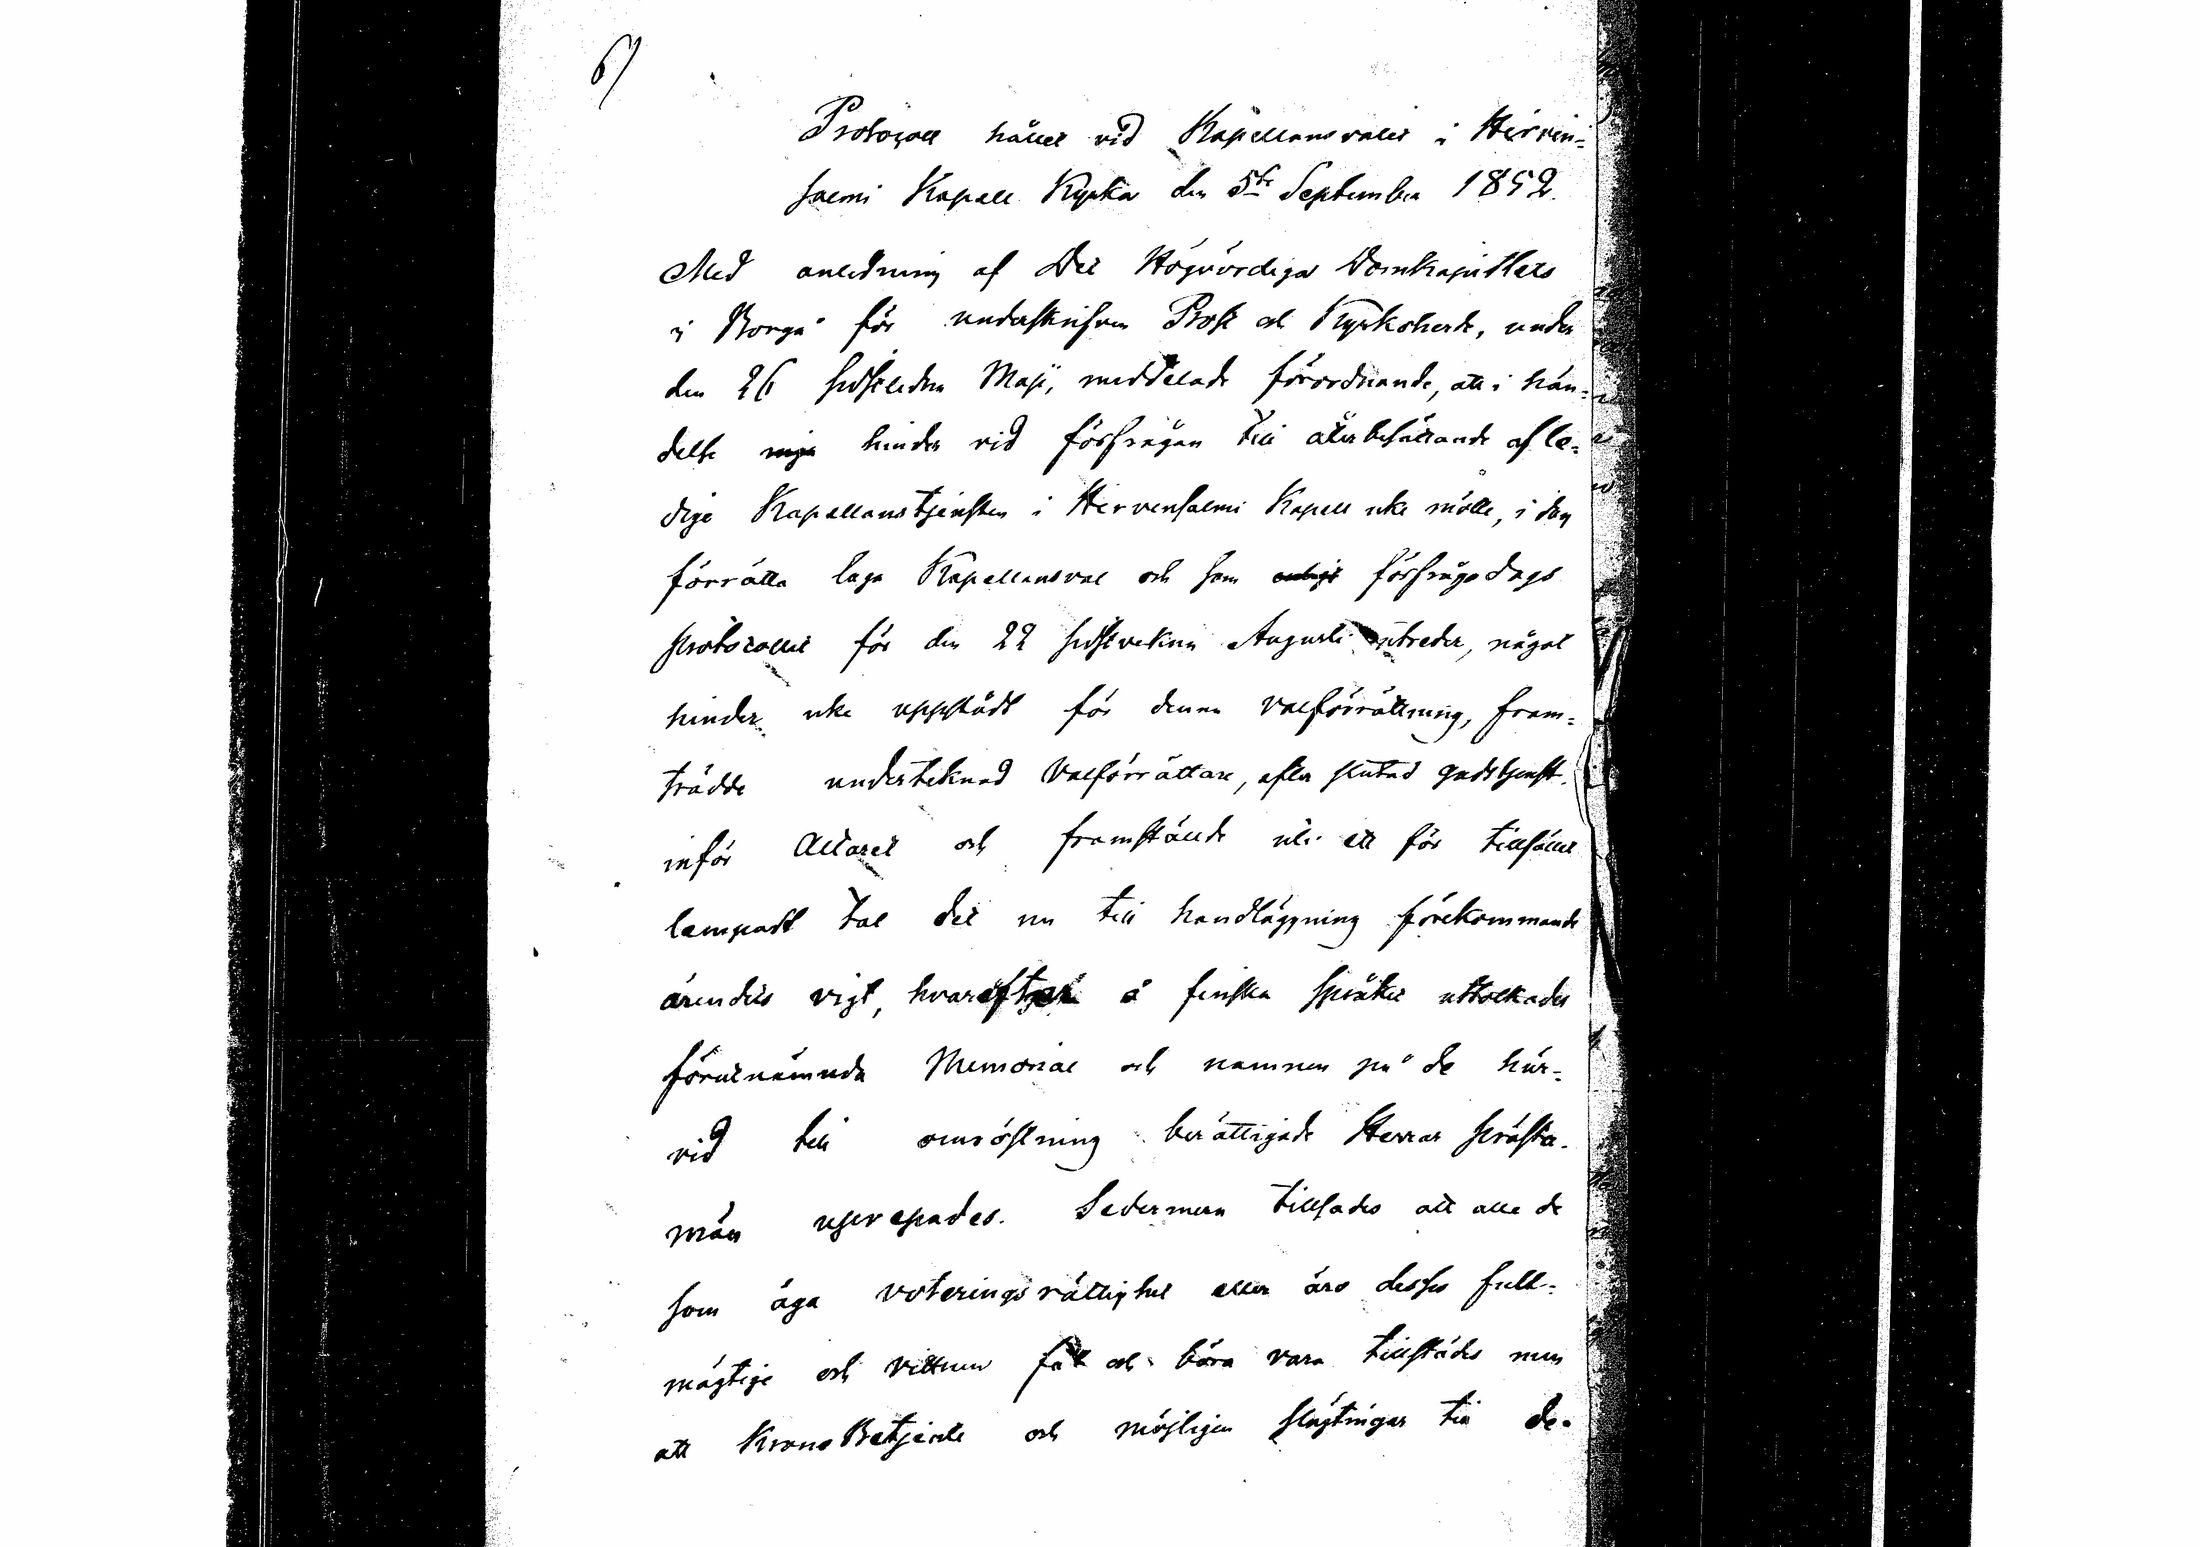 6)
Protocoll hållet vid Kapellansvalet i Hirven=
salmi Kapell Kyrka den 5te September 1852.
Med anledning af Det Högvördiga Domkapitlets
i Borgå för underskrifven Prost och Kyrkoherde, under
den 26 sidstledne Maji, meddelade förordnande, att i hän=
delse hinder vid förfrågan till återbesättande af le=
diga Kapellanstjensten i Hirvensalmi Kapell icke mötte, i dag
förrätta laga Kapellansval och som förfrågodags
protocollet för den 22 sidstvekne Augusti utreder, något
hinder icke uppstådt för denna valförrättning, fram=
trädde undertecknad Valförrättare, efter slutad gudstjenst.
inför Altaret och framställde uti ett för tillfället
lempadt tal det nu till handläggning förekommande
ärendets vigt, hvarefter å finska språket uttolkades
förutnämnda Memorial och namnen på de här=
vid till omröstning berättigade Herrar prästa-
män upprepades. Sedermera tillsades att alla de
som äga voteringsrättighet eller äro desses full=
mägtige och vittnen få och böra vara tillstädes men
att KronoBetjente och möjligen slägtingar till de-